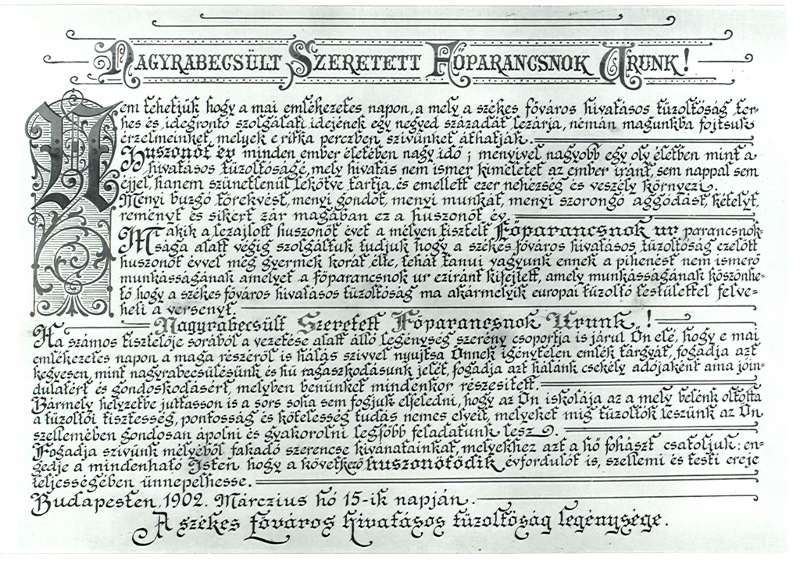 NAGYRABECSÜLT SZERETETT FŐPARANCSNOK URUNK!
Nem tehetjük hogy a mai emlékezetes napon, a mely a székes főváros hivatásos tűzoltóság ter-
hes és idegrontó szolgálati idejének egy negyed századát lezárja, némán magunkba fojtsuk
érzelmeinket, melyek e ritka perczben szivünket áthatják.
Huszonöt év minden ember életében nagy idő; menyivel nagyobb egy oly életben mint a
hivatásos tűzoltóságé, mely hivatás nem ismer kiméletet az ember iránt, sem nappal sem
éjjel, hanem szünetlenül lekötve tartja, és emellett ezer nehézség és veszély környezi.
Menyi buzgó törekvést, menyi gondot, menyi munkát, menyi szorongó aggódást, kételyt,
reményt és sikert zár magában ez a huszonöt év.
Mi akik a lezajlott huszonöt évet a mélyen tisztelt Főparancsnok ur parancsnok-
sága alatt végig szolgáltuk tudjuk hogy a székes főváros hivatásos tűzoltóság ezelőtt
huszonöt évvel még gyermek korát élte, tehát tanui vagyunk ennek a pihenést nem ismerő
munkásságának amelyet a főparancsnok ur eziránt kifejtett, amely munkásságának köszönhe-
tő hogy a székes főváros hivatásos tűzoltóság ma akármelyik europai tűzoltó testülettel felve-
heti a versenyt.
Nagyrabecsült Szeretett Főparancsnok Urunk!
Ha számos tisztelője sorából a vezetése alatt álló legénység szerény csoportja is járul Ön elé, hogy e mai
emlékezetes napon a maga részéről is hálás szivvel nyujtsa Önnek igénytelen emlék tárgyát, fogadja azt
kegyesen, mint nagyrabecsülésünk és hű ragaszkodásunk jelét, fogadja azt hálánk csekély adójaként ama jóin-
dulatért és gondoskodásért, melyben bennünket mindenkor részesitett.
Bármely helyzetbe juttasson is a sors soha sem fogjuk elfeledni, hogy az Ön iskolája az a mely belénk oltotta
a tűzoltói tisztesség, pontosság és kötelesség tudás nemes elveit, melyeket mig tűzoltók leszünk az Ön
szellemében gondosan ápolni és gyakorolni legfőbb feladatunk lesz.
Fogadja szivünk mélyéből fakadó szerencse kivánatainkat, melyekhez azt a hő fohászt csatoljuk: en-
gedje a mindenható Isten hogy a következő huszonötödik évfordulót is, szellemi és testi ereje
teljességében ünnepelhesse.
Budapesten, 1902. Márczius hó 15-ik napján.
A székes főváros hivatásos tűzoltóság legénysége.